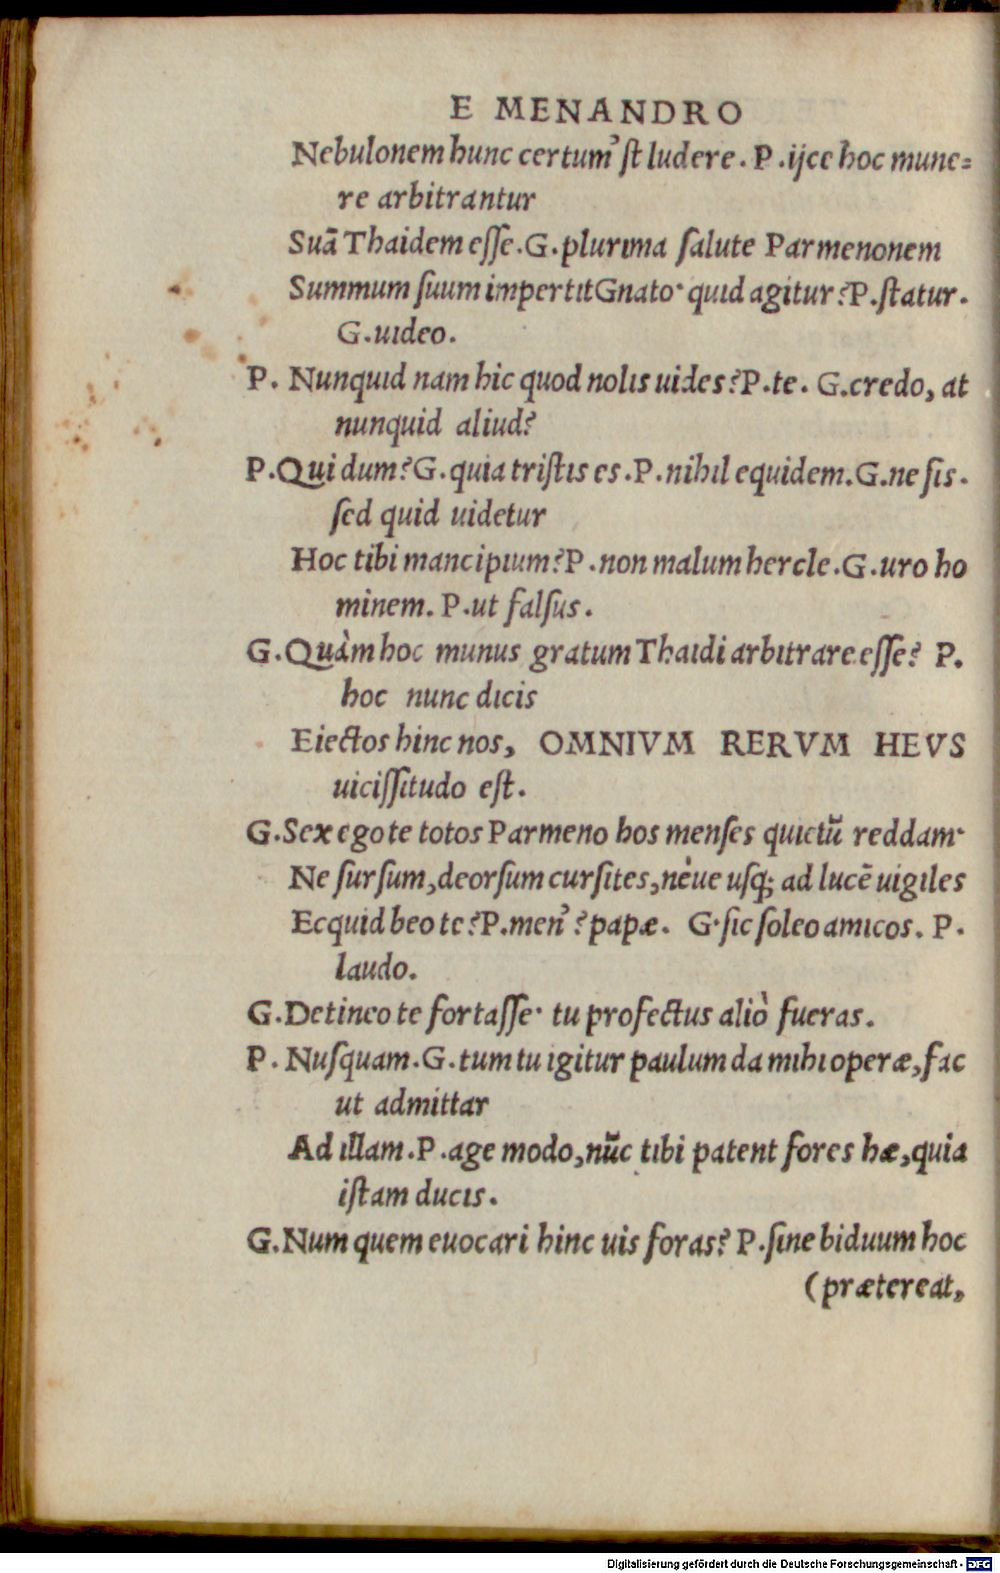 E MENANDRO
Nebulonem hunc certum᾽st ludere. P. ijce hoc mune=
re arbitrantur
Suā Thaidem esse. G. plurima salute Parmenonem
Summum suum impertit Gnato· quid agitur? P. statur.
G. uideo.
P. Nunquid nam hic quod nolis uides? P. te. G. credo, at
nunquid aliud?
P. Qui dum? G. quia tristis es. P. nihil equidem. G. ne sis.
sed quid uidetur
Hoc tibi mancipium? P. non malum hercle. G. uro ho
minem. P. ut falsus.
G. Quàm hoc munus gratum Thaidi arbitrare esse? P.
hoc nunc dicis
Eiectos hinc nos, OMNIVM RERVM HEVS
uicissitudo est.
G. Sex ego te totos Parmeno hos menses quietũ reddam·
Ne sursum, deorsum cursites, nèue usq; ad lucē uigiles
Ecquid beo te? P. men᾽? papæ. G· sic soleo amicos. P.
laudo.
G. Detineo te fortasse· tu profectus aliò fueras.
P. Nusquam. G. tum tu igitur paulum da mihi operæ, fac
ut admittar
Ad illam. P. age modo, nũc tibi patent fores hæ, quia
istam ducis.
G. Num quem euocari hinc uis foras? P. sine biduum hoc
(prætereat,
Digitalisierung gefördert durch die Deutsche Forschungsgemeinschaft - DFG